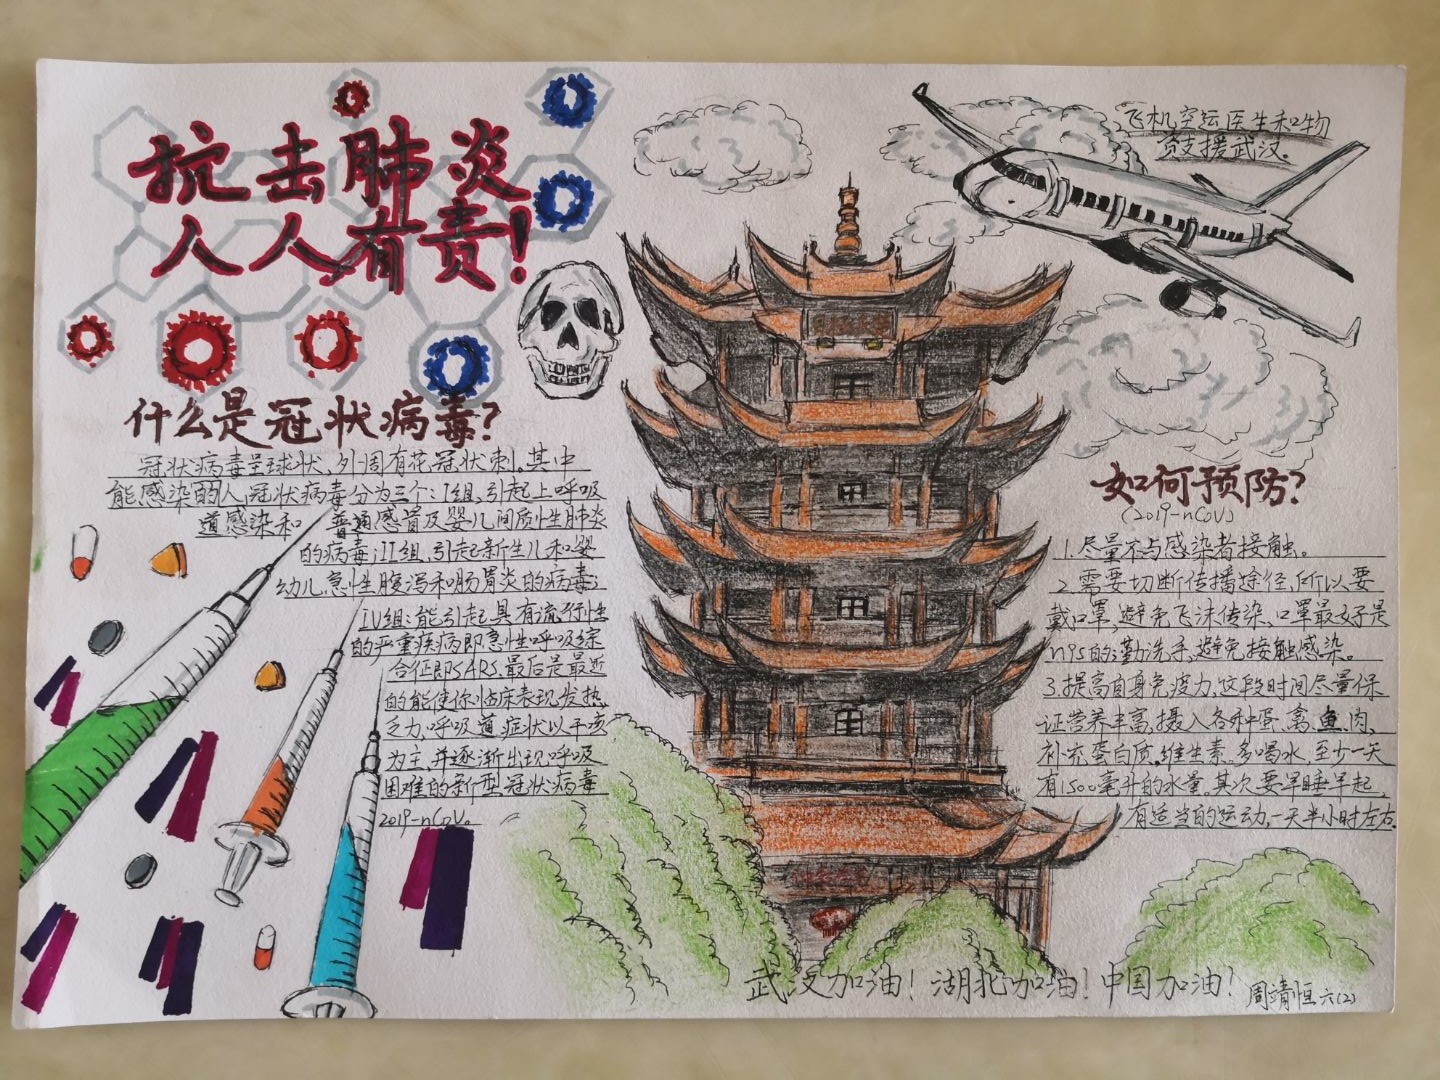 抗击肺炎
人人有责!
什么是冠状病毒?
冠状病毒呈球状,外周有花冠状刺,其中
能感染的人冠状病毒分为三个:I组,引起上呼吸
道感染和 普通感冒及婴儿间质性肺炎
的病毒;II组,引起新生儿和婴
幼儿急性腹泻和肠胃炎的病毒;
IV组:能引起具有流行性
的严重疾病即急性呼吸综
合征即SARS.最后是最近
的能使你临床表现发热,
乏力,呼吸道症状以干咳
为主,并逐渐出现呼吸
困难的新型冠状病毒
2019-nCoV。
飞机空运医生和物
资支援武汉。
如何预防?
(2019-nCoV)
1.尽量不与感染者接触。
2.需要切断传播途径,所以,要
戴口罩,避免飞沫传染,口罩最好是
N95的;勤洗手,避免接触感染。
3.提高自身免疫力,这段时间尽量保
证营养丰富,摄入各种蛋、禽、鱼、肉,
补充蛋白质,维生素.多喝水,至少一天
有1500毫升的水量,其次要早睡早起,
有适当的运动,一天半小时左右.
武汉加油!湖北加油!中国加油!
周靖恒 六(2)